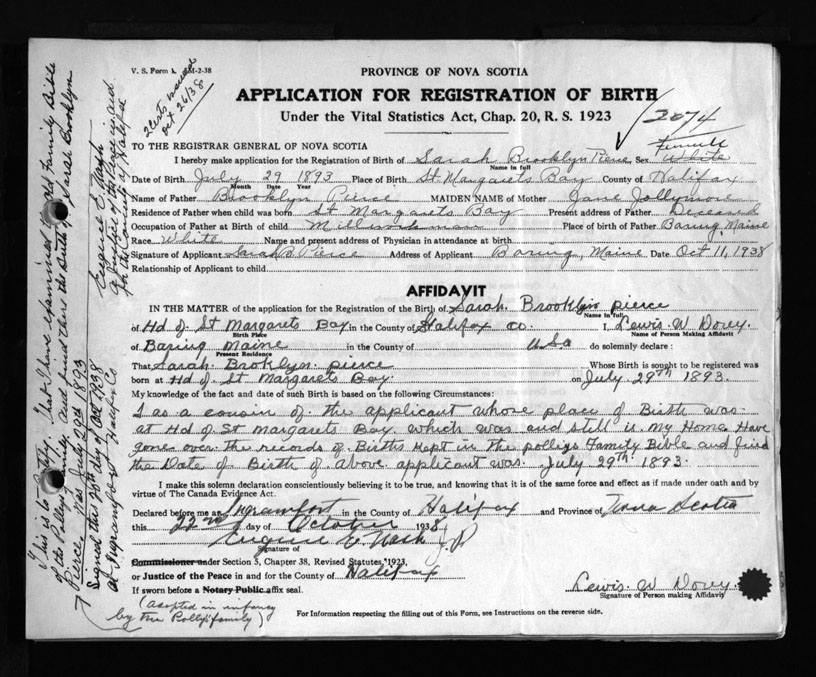 V. S. Form M-2-38
2 Certs issued
Oct 26/38
PROVINCE OF NOVA SCOTIA
APPLICATION FOR REGISTRATION OF BIRTH
Under the Vital Statistics Act, Chap. 20, R. S. 1923
2074
TO THE REGISTRAR GENERAL OF NOVA SCOTIA
Female
I hereby make application for the Registration of Birth of Sarah Brooklyn Pierce Sex White
Name in full
Date of Birth July 29 1893 Place of Birth St Margarets Bay County of Halifax
Month Date Year
Name of Father Brooklyn Pierce MAIDEN NAME of Mother Jane Jollymore
Residence of Father when child was born St Margarets Bay Present address of Father Deceased
Occupation of Father at Birth of child Millwork man Place of birth of Father Baring, Maine
Race White Name and present address of Physician in attendance at birth
Signature of Applicant Sarah B. Pierce Address of Applicant Baring, Maine Date Oct 11, 1938
Relationship of Applicant to child
AFFIDAVIT
IN THE MATTER of the application for the Registration of the Birth of Sarah Brooklyn pierce
Name in full
of Hd of St Margarets Bay in the County of Halifax co. I, Lewis W Dorey.
Birth Place Name of Person Making Affidavit
of Baring Maine in the County of U S a do solemnly declare:
Present Residence
That Sarah Broklyn pierce Whose Birth is sought to be registered was
born at Hd of St Margarets Bay on July 29th 1893.
My knowledge of the fact and date of such Birth is based on the following Circumstances:
I as a cousin of the applicant whose place of Birth was
at Hd of St Margarets Bay. Which was and still is My Home Have
gone over the records of Births Kept in the pollys Family Bible and find
the Date of Birth of above applicant was July 29th 1893
I make this solemn declaration conscientiously believing it to be true, and knowing that it is of the same force and effect as if made under oath and by
virtue of The Canada Evidence Act.
Declared before me at Ingramport in the County of Halifax and Province of Nova Scotia
this 22nd day of October 1938
Eugene E Nash J.P.
Signature of
Commissioner under Section 5, Chapter 38, Revised Statutes, 1923,
or Justice of the Peace in and for the County of Halifax
If sworn before a Notary Public affix seal.
Lewis W Dorey.
Signature of Person making Affidavit
(adopted in infancy
by the Polly family)
For Information respecting the filling out of this Form, see Instructions on the reverse side.
This is to Certify That I have examined the old Family Bible
of the Polly family and find there the Birth of Sarah Brooklyn
Pierce was July 29th 1893
Signed this 25th day of Oct 1938
at Ingramport Halifax Co
Eugene E Nash
A Justice of the Peace in and
for the County of Halifax